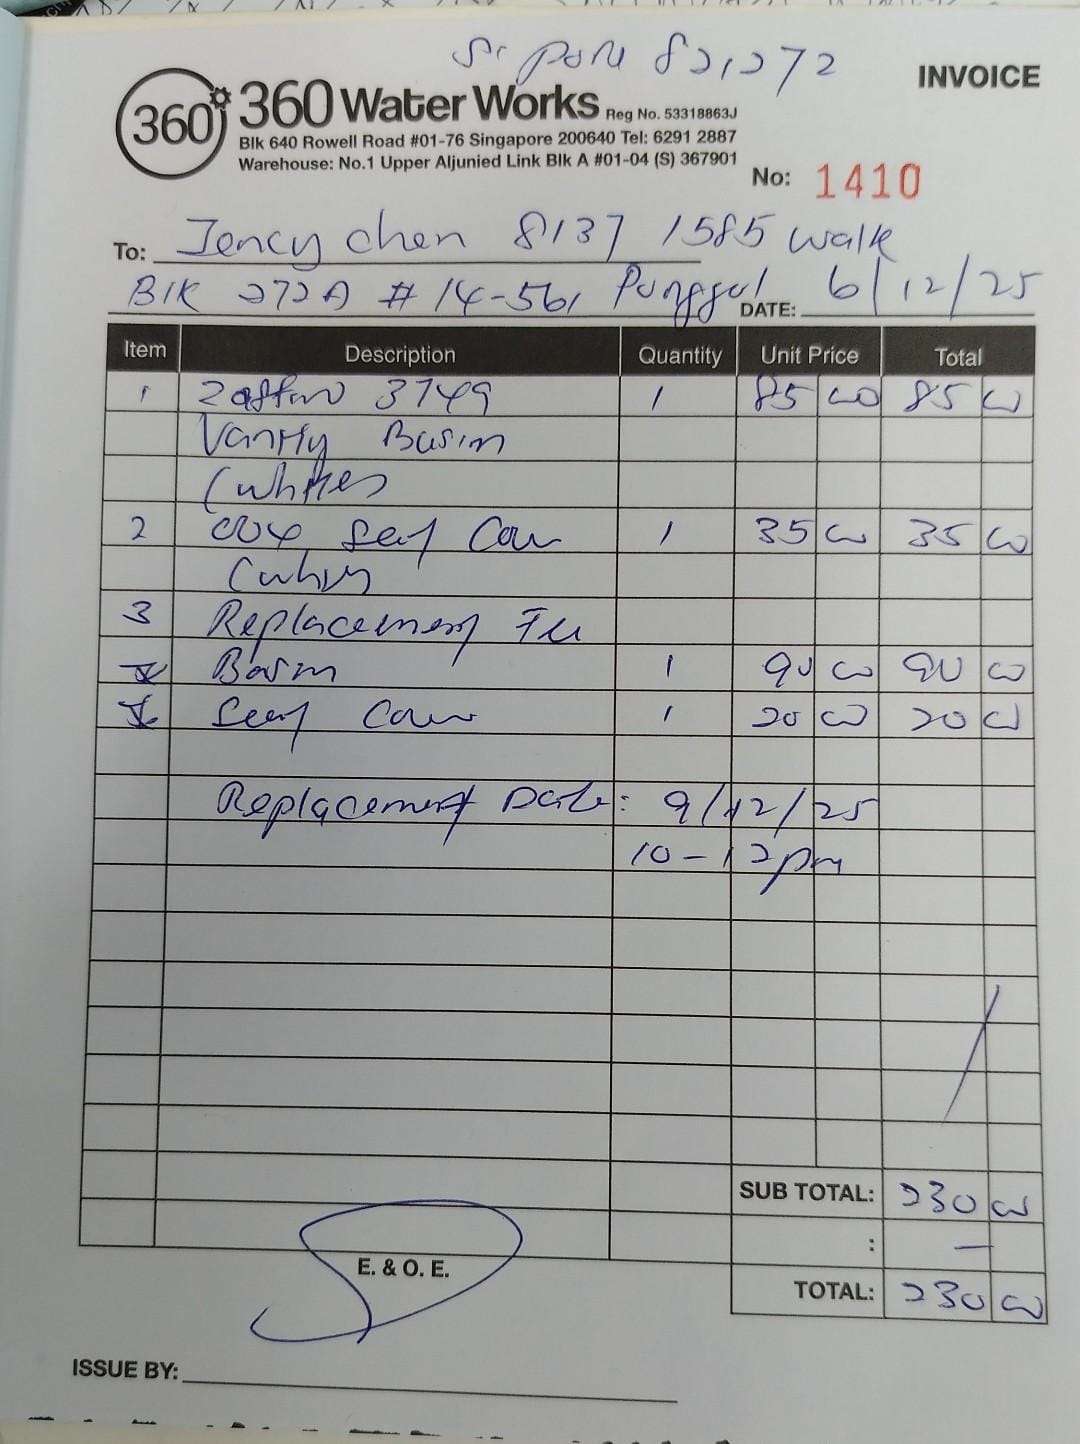 S'pore 821272
INVOICE
360° 360 Water Works Reg No. 53318863J
Blk 640 Rowell Road #01-76 Singapore 200640 Tel: 6291 2887
Warehouse: No.1 Upper Aljunied Link Blk A #01-04 (S) 367901
No: 1410
To: Jency chen 8137 1585 walk
Blk 272A #14-561 Punggol DATE: 6/12/25
Item Description Quantity Unit Price Total
1 3749 1 85 00 85 00
Vanity Basin
(white)
2 Seat Cover 1 35 00 35 00
(white)
3 Replacement Fee
Basin 1 90 00 90 00
Seat Cover 1 20 00 20 00
Replacement Date: 9/12/25
10-12pm
SUB TOTAL: 230 00
: —
E. & O. E.
TOTAL: 230 00
ISSUE BY: